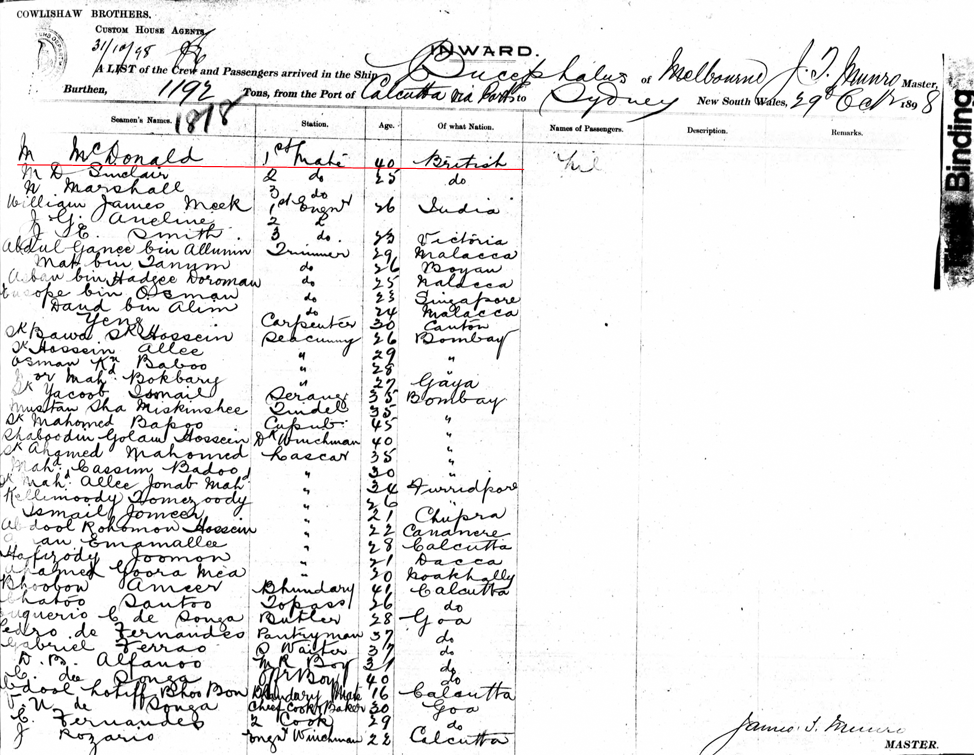 COWLISHAW BROTHERS.
CUSTOM HOUSE AGENTS,
31/10/98
INWARD.
A LIST of the Crew and Passengers arrived in the Ship Bucephalus of Melbourne J. T. Munro Master,
Burthen, 1192 Tons, from the Port of Calcutta via Ports to Sydney New South Wales, 29th Oct 1898
1878
Seamen's Names. Station. Age. Of what Nation. Names of Passengers. Description. Remarks.
M McDonald 1st Mate 40 British Nil
M D. Sinclair 2 do 25 do
N Marshall 3 do
William James Meek 1st Engnr 26 India
J. G. Ancline 2
J. E. Smith 3 do. 23 Victoria
Abdul Ganee bin Allumin Trimmer 29 Malacca
Mat bin Tanym do 26 Boyan
bin Hadgee Doroman do 25 Malacca
bin Osman do 23 Singapore
Daud bin Alim do 24 Malacca
Yeng Carpenter 30 Canton
Sk Bawa Sk Hossein Seacunny 26 Bombay
Sk Hossein Allee " 29 "
Osman Baboo " 28 "
Mahd. Bokbary " 27 Gaya
Sk Yacoob Ismail Serang 35 Bombay
Mustan Sha Miskinshee Tindel 35 "
Sk Mahomed Bapoo 45 "
Shaboodin Golam Hossein Dk Winchman 40 "
Sk Ahamed Mahomed Lascar 35 "
Mahd Cassim Badoo " 30 "
Sk Mahd. Allee Jonab Mahd " 34 Furridpore
Kellimoody Tomezoody " 26 "
Ismail Jomeer " 21 Chupra
Abdool Rohomon Hossein " 22 Cananere
Emamallee " 28 Calcutta
Hafizody Joomon " 21 Dacca
Ahamed Goora Mea " 20 Noakhally
Bhoobon Ameer Bhundary 41 Calcutta
Santoo Topass 26 do
C de Souza Butler 28 Goa
Pedro de Fernandes Pantryman 37 do
Gabriel Ferrao Waiter 37 do
D. B. Alfanso M R Boy 31 do
C de Souza Boy 40 do
Abdool Lotiff Bhoo Bon Bhundary Mate 16 Calcutta
N. de Souza Chief Cook & Baker 30 Goa
C. Fernandes 2 Cook 29 do
J Rozario Winchman 22 Calcutta
James T. Munro
MASTER.
Binding